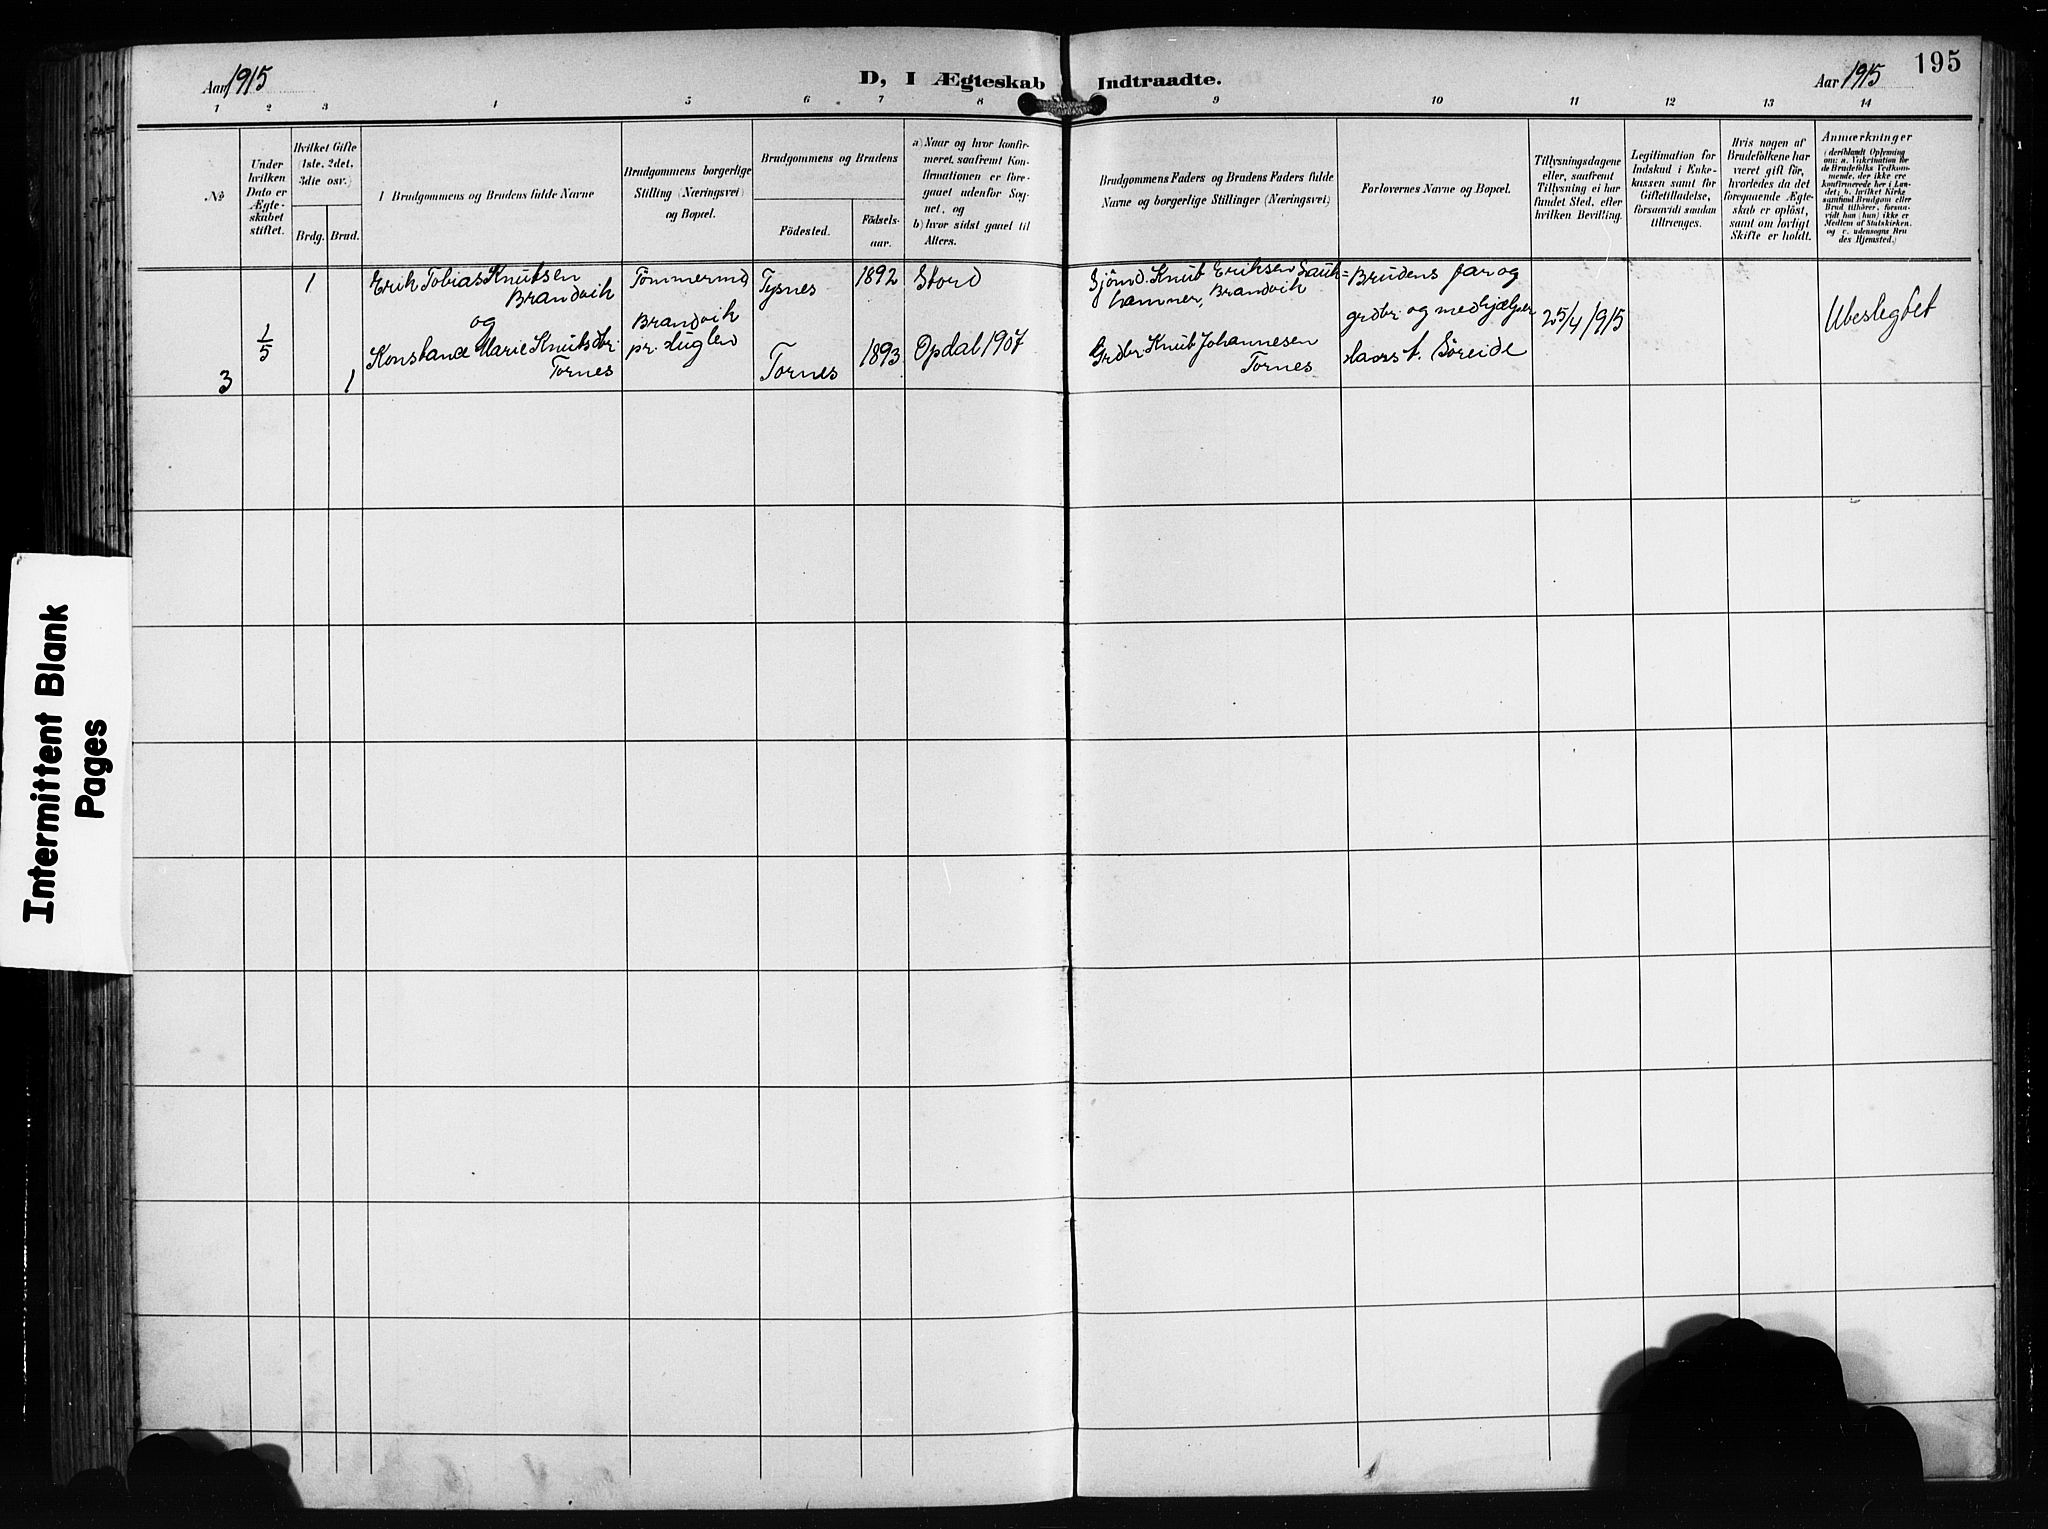 Aar 1915
D, I Ægteskab Indtraadte.
Aar 1915
195
1 2 3 4 5 6 7 8 9 10 11 12 13 14
No
Under
hvilken
Dato er
Ægte-
skabet
stiftet.
Hvilket Gifte
(1ste, 2det,
3die osv.)
Brdg. Brud.
Brudgommens og Brudens fulde Navne
Brudgommens borgerlige
Stilling (Næringsvei)
og Bopæl.
Brudgommens og Brudens
Födested.
Födsels-
aar.
a) Naar og hvor konfir-
meret, saafremt Kon-
firmationen er fore-
gaaet udenfor Sog-
net, og
b) hvor sidst gaaet til
Alters.
Brudgommens Faders og Brudens Faders fulde
Navne og borgerlige Stillinger (Næringsvei)
Forlovernes Navne og Bopæl.
Tillysningsdagene
eller, saafremt
Tillysning ei har
fundet Sted, efter
hvilken Bevilling.
Legitimation for
Indskud i Enke-
kassen samt for
Giftetilladelse,
forsaavidt saadan
tiltrænges.
Hvis nogen af
Brudefolkene har
været gift för,
hvorledes da det
foregaaende Ægte-
skab er oplöst,
samt om lovligt
Skifte er holdt.
Anmærkninger
(deriblandt Oplysning
om: a. Vakcination for
de Brudefolks Vedkom-
mende, der ikke ere
konfirmerede her i Lan-
det; b. hvilket Kirke
samfund Brudgom eller
Brud tilhörer, forsaa-
vidt han (hun) ikke er
Medlem af Statskirken.
og c. udensogns Bru
des Hjemsted.)
3
1/5
1
1
Erik Tobias Knutsen
Brandvik
og
Konstance Marie Knutsdtr.
Tornes
Tömmermd
Brandvik
pr. Huglen
Tysnes
Tornes
1892
1893
Stord
Opdal 1907
Sjömd. Knut Eriksen Sauk=
hammer, Brandvik
Grdbr Knut Johannesen
Tornes
Brudens far og
grdbr. og medhjælper
Lars T. Söreide
25/4 1915
Ubeslegtet
Intermittent Blank
Pages